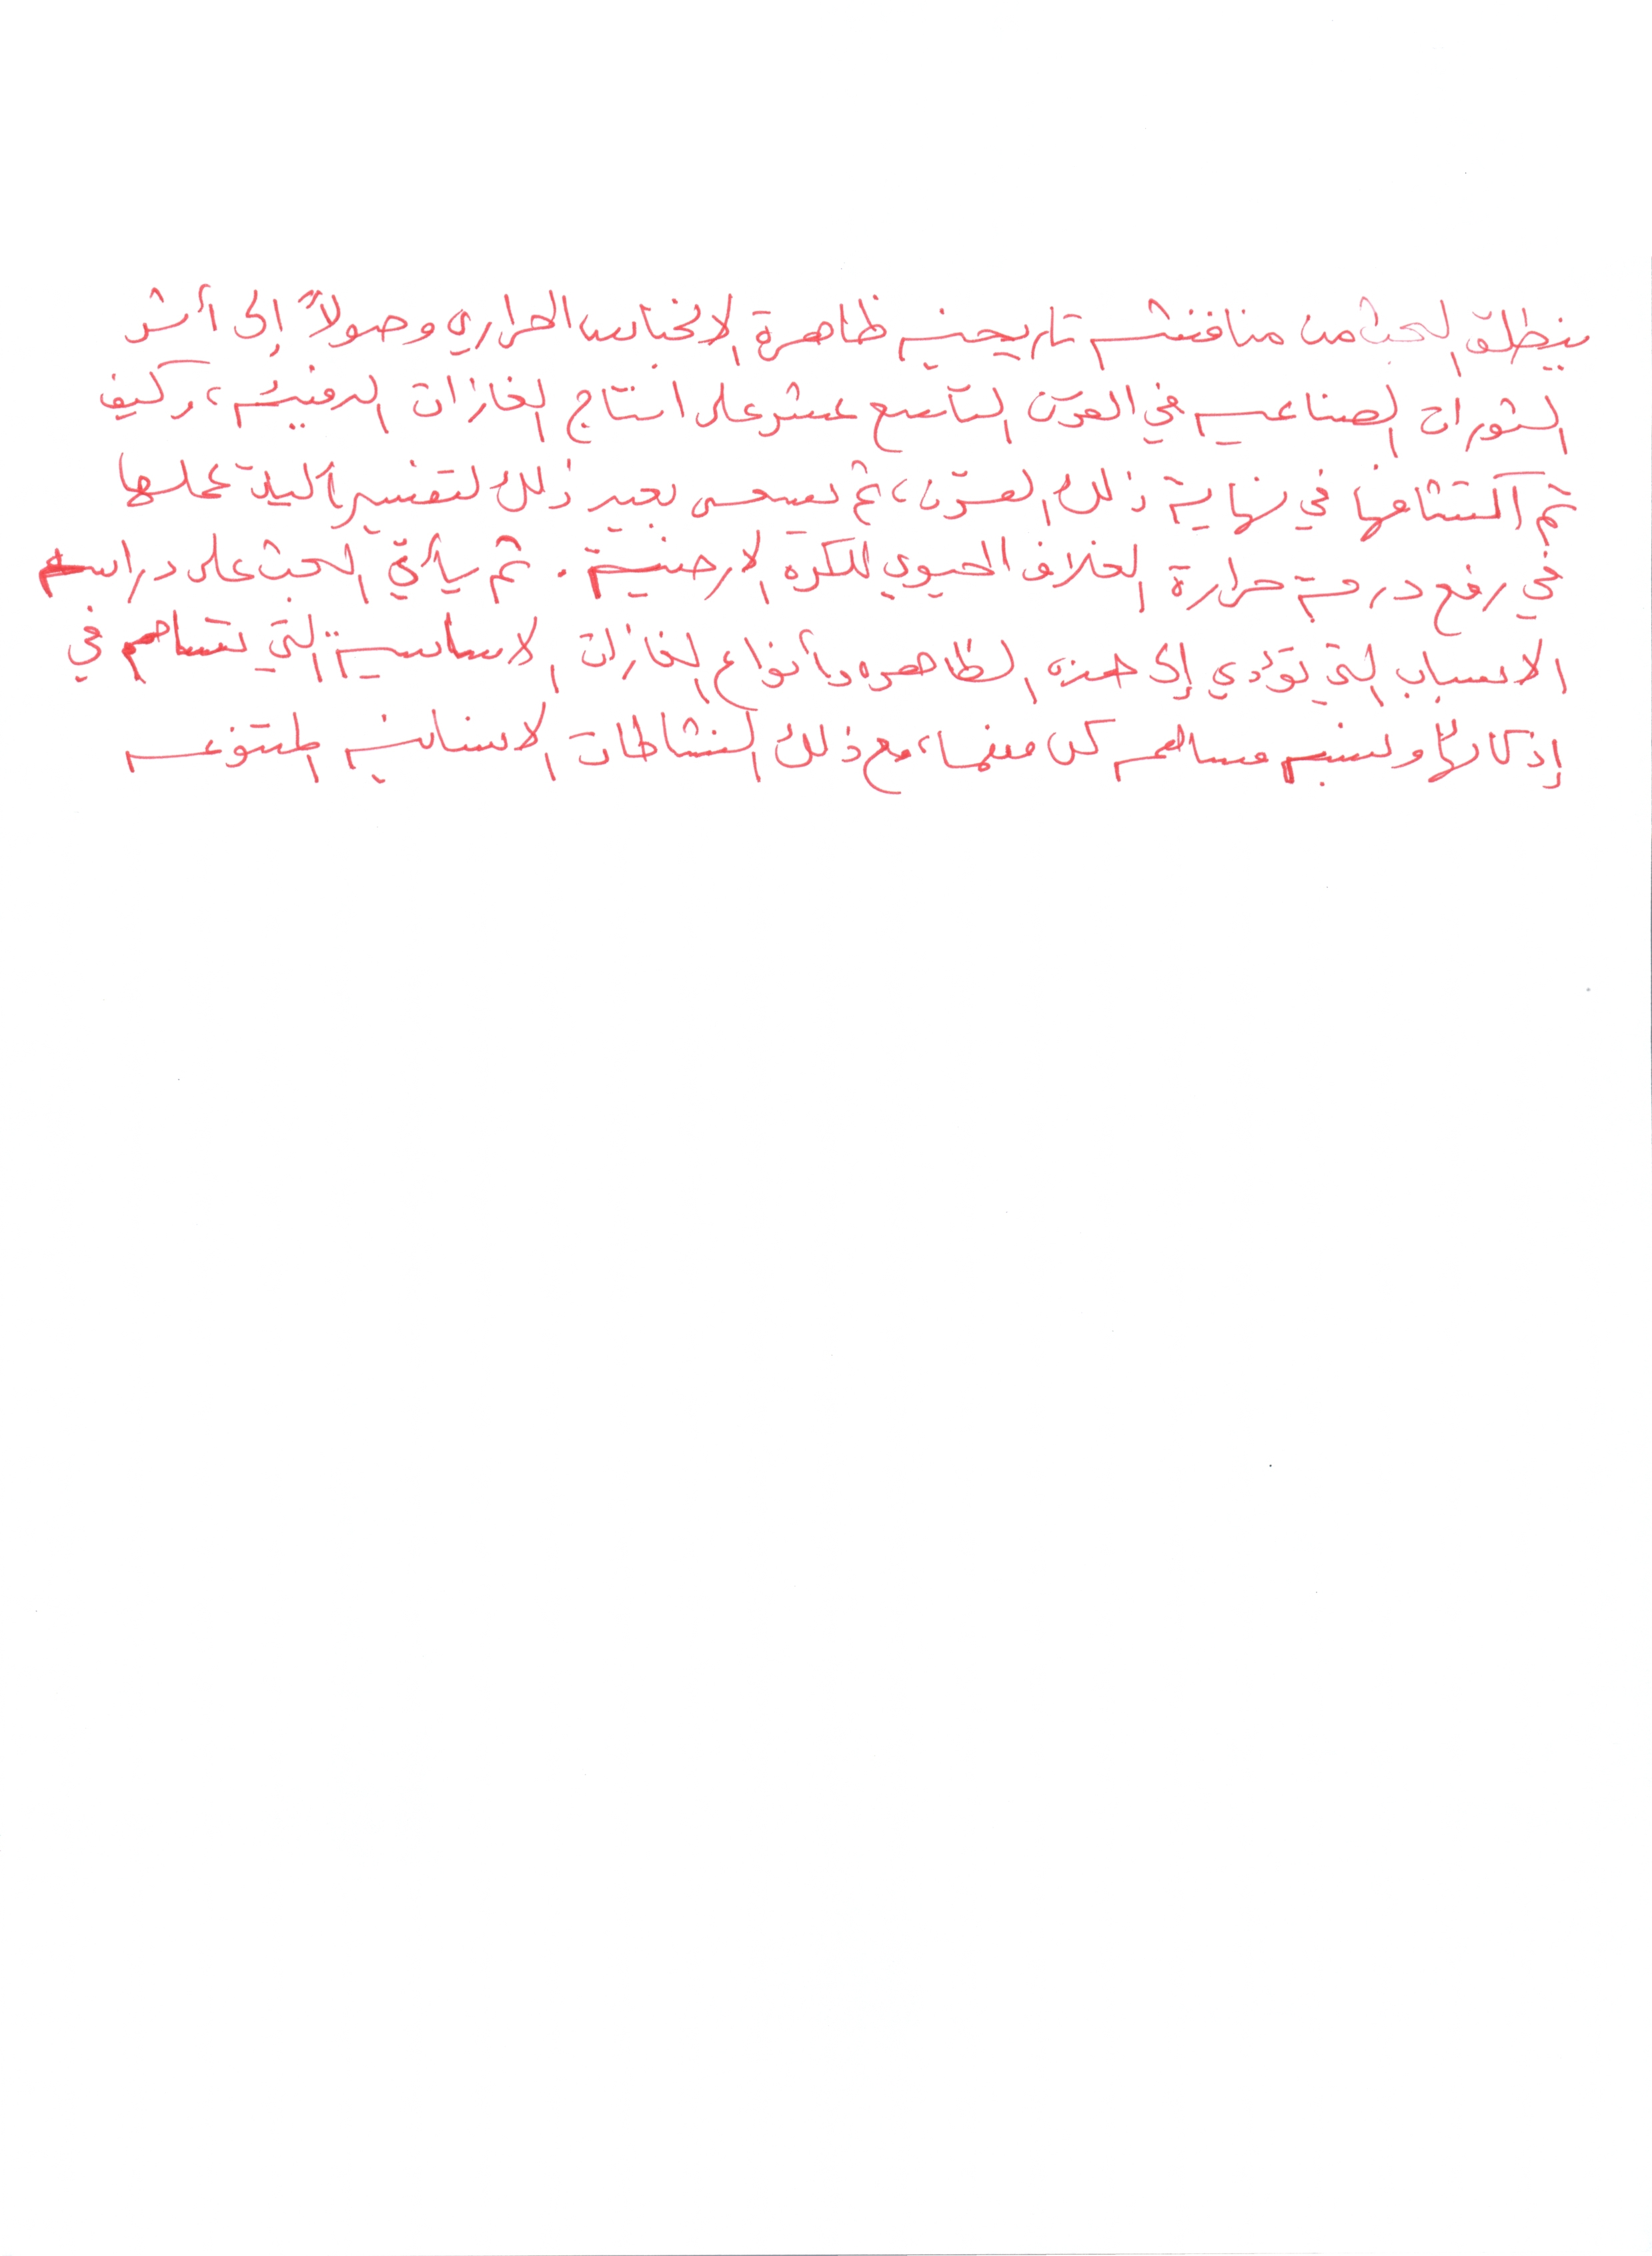 ينطلق البحث من مناقشة تاريخية ظاهرة الاحتباس الحراري وصولاً إلى أثر
الثورات الصناعية في القرن التاسع عشر على انتاج الغازات الدفيئة، وكيف
تم اكتشافها في نهاية ذلك القرن، ثم يسعى بعد ذلك لتفسير آلية عملها
في رفع درجة حرارة الغلاف الحيوي للكرة الارضية. ثم يأتي البحث على دراسة
الاسباب التي تؤدي إلى هذه الظاهره وأنواع الغازات الاساسية التي تساهم في
إذكائها ونسبة مساهمة كل منها، مع ذلك النشاطات الانسانية المتنوعة